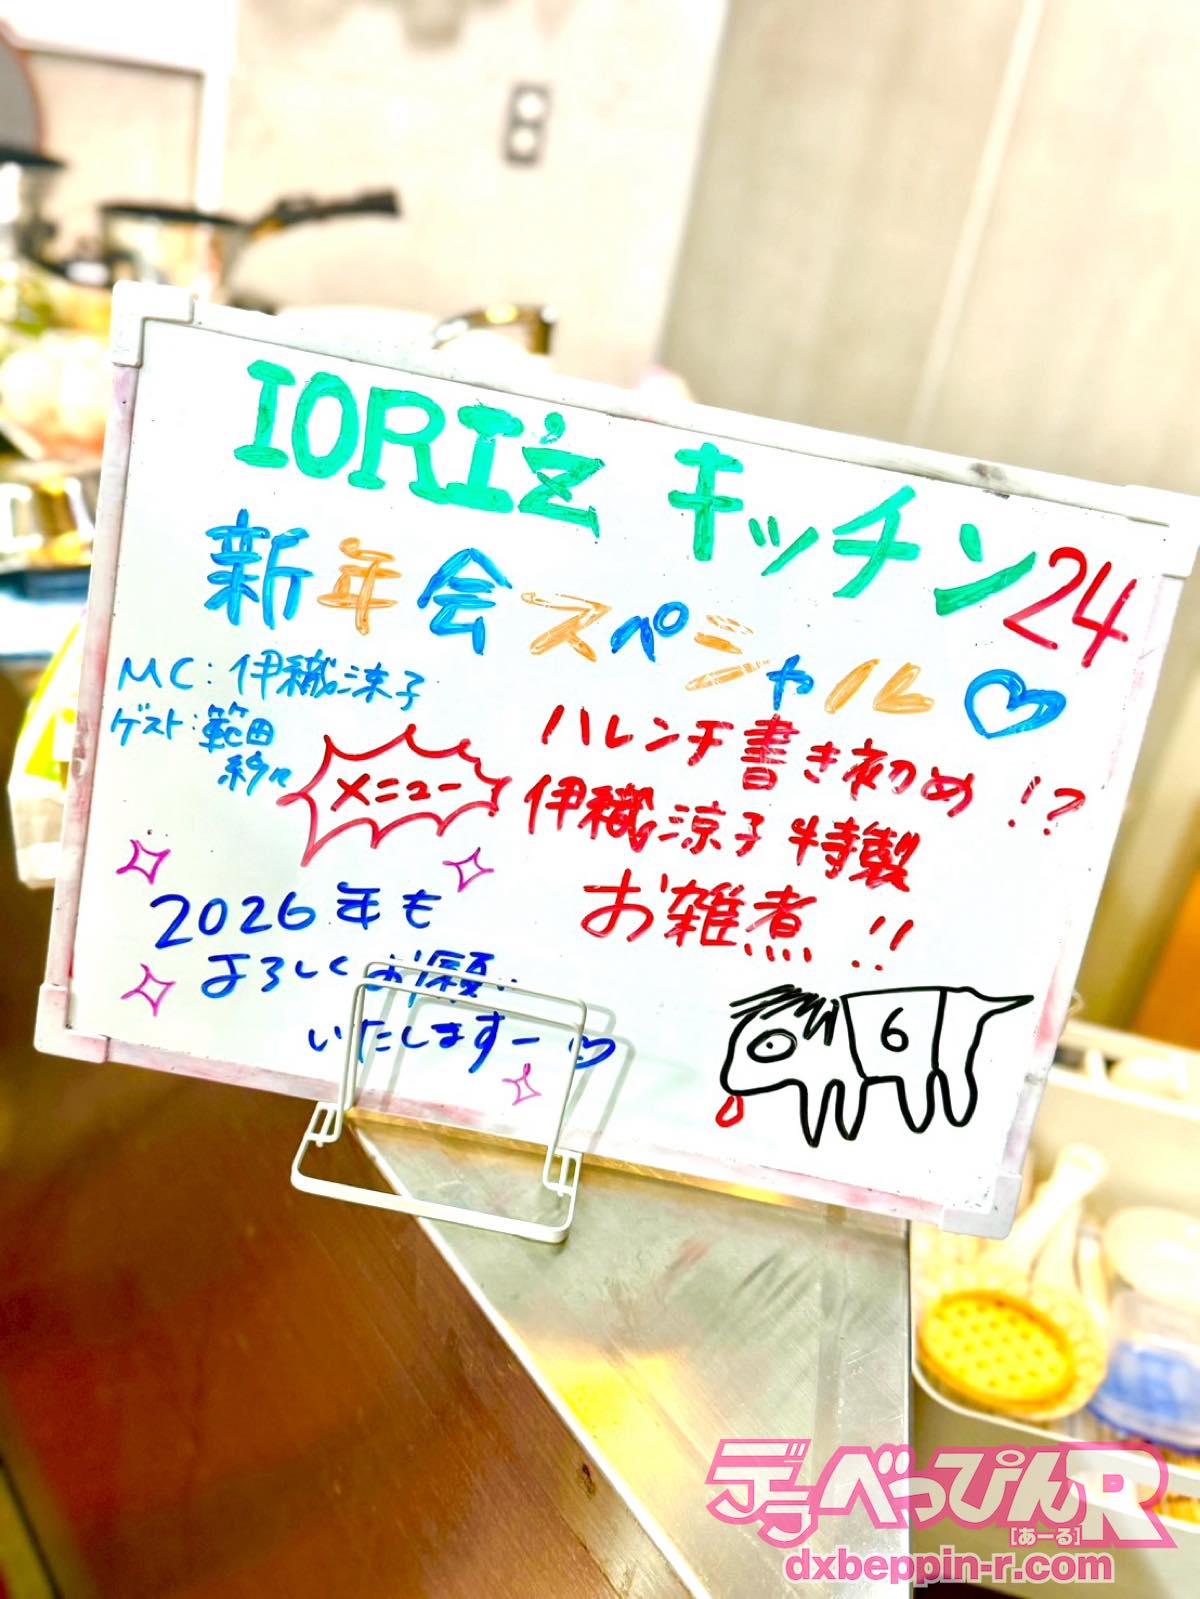 IORI'z キッチン24
新年会スペシャル
MC:伊織涼子
ゲスト:範田
紗々
メニュー
ハレンチ書き初め!?
伊織涼子特製
お雑煮!!
2026年も
よろしくお願い
いたしますー
6
デラべっぴんR
[あーる]
dxbeppin-r.com